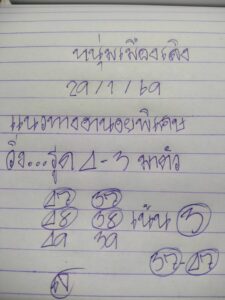 หนุ่มเมืองเลิง
29/1/69
แนวทางฮานอยพิเศษ
วิ่ง...รูด 4-3 มาตัว
47 37
48 38 เน้น 3
49 39
37-47